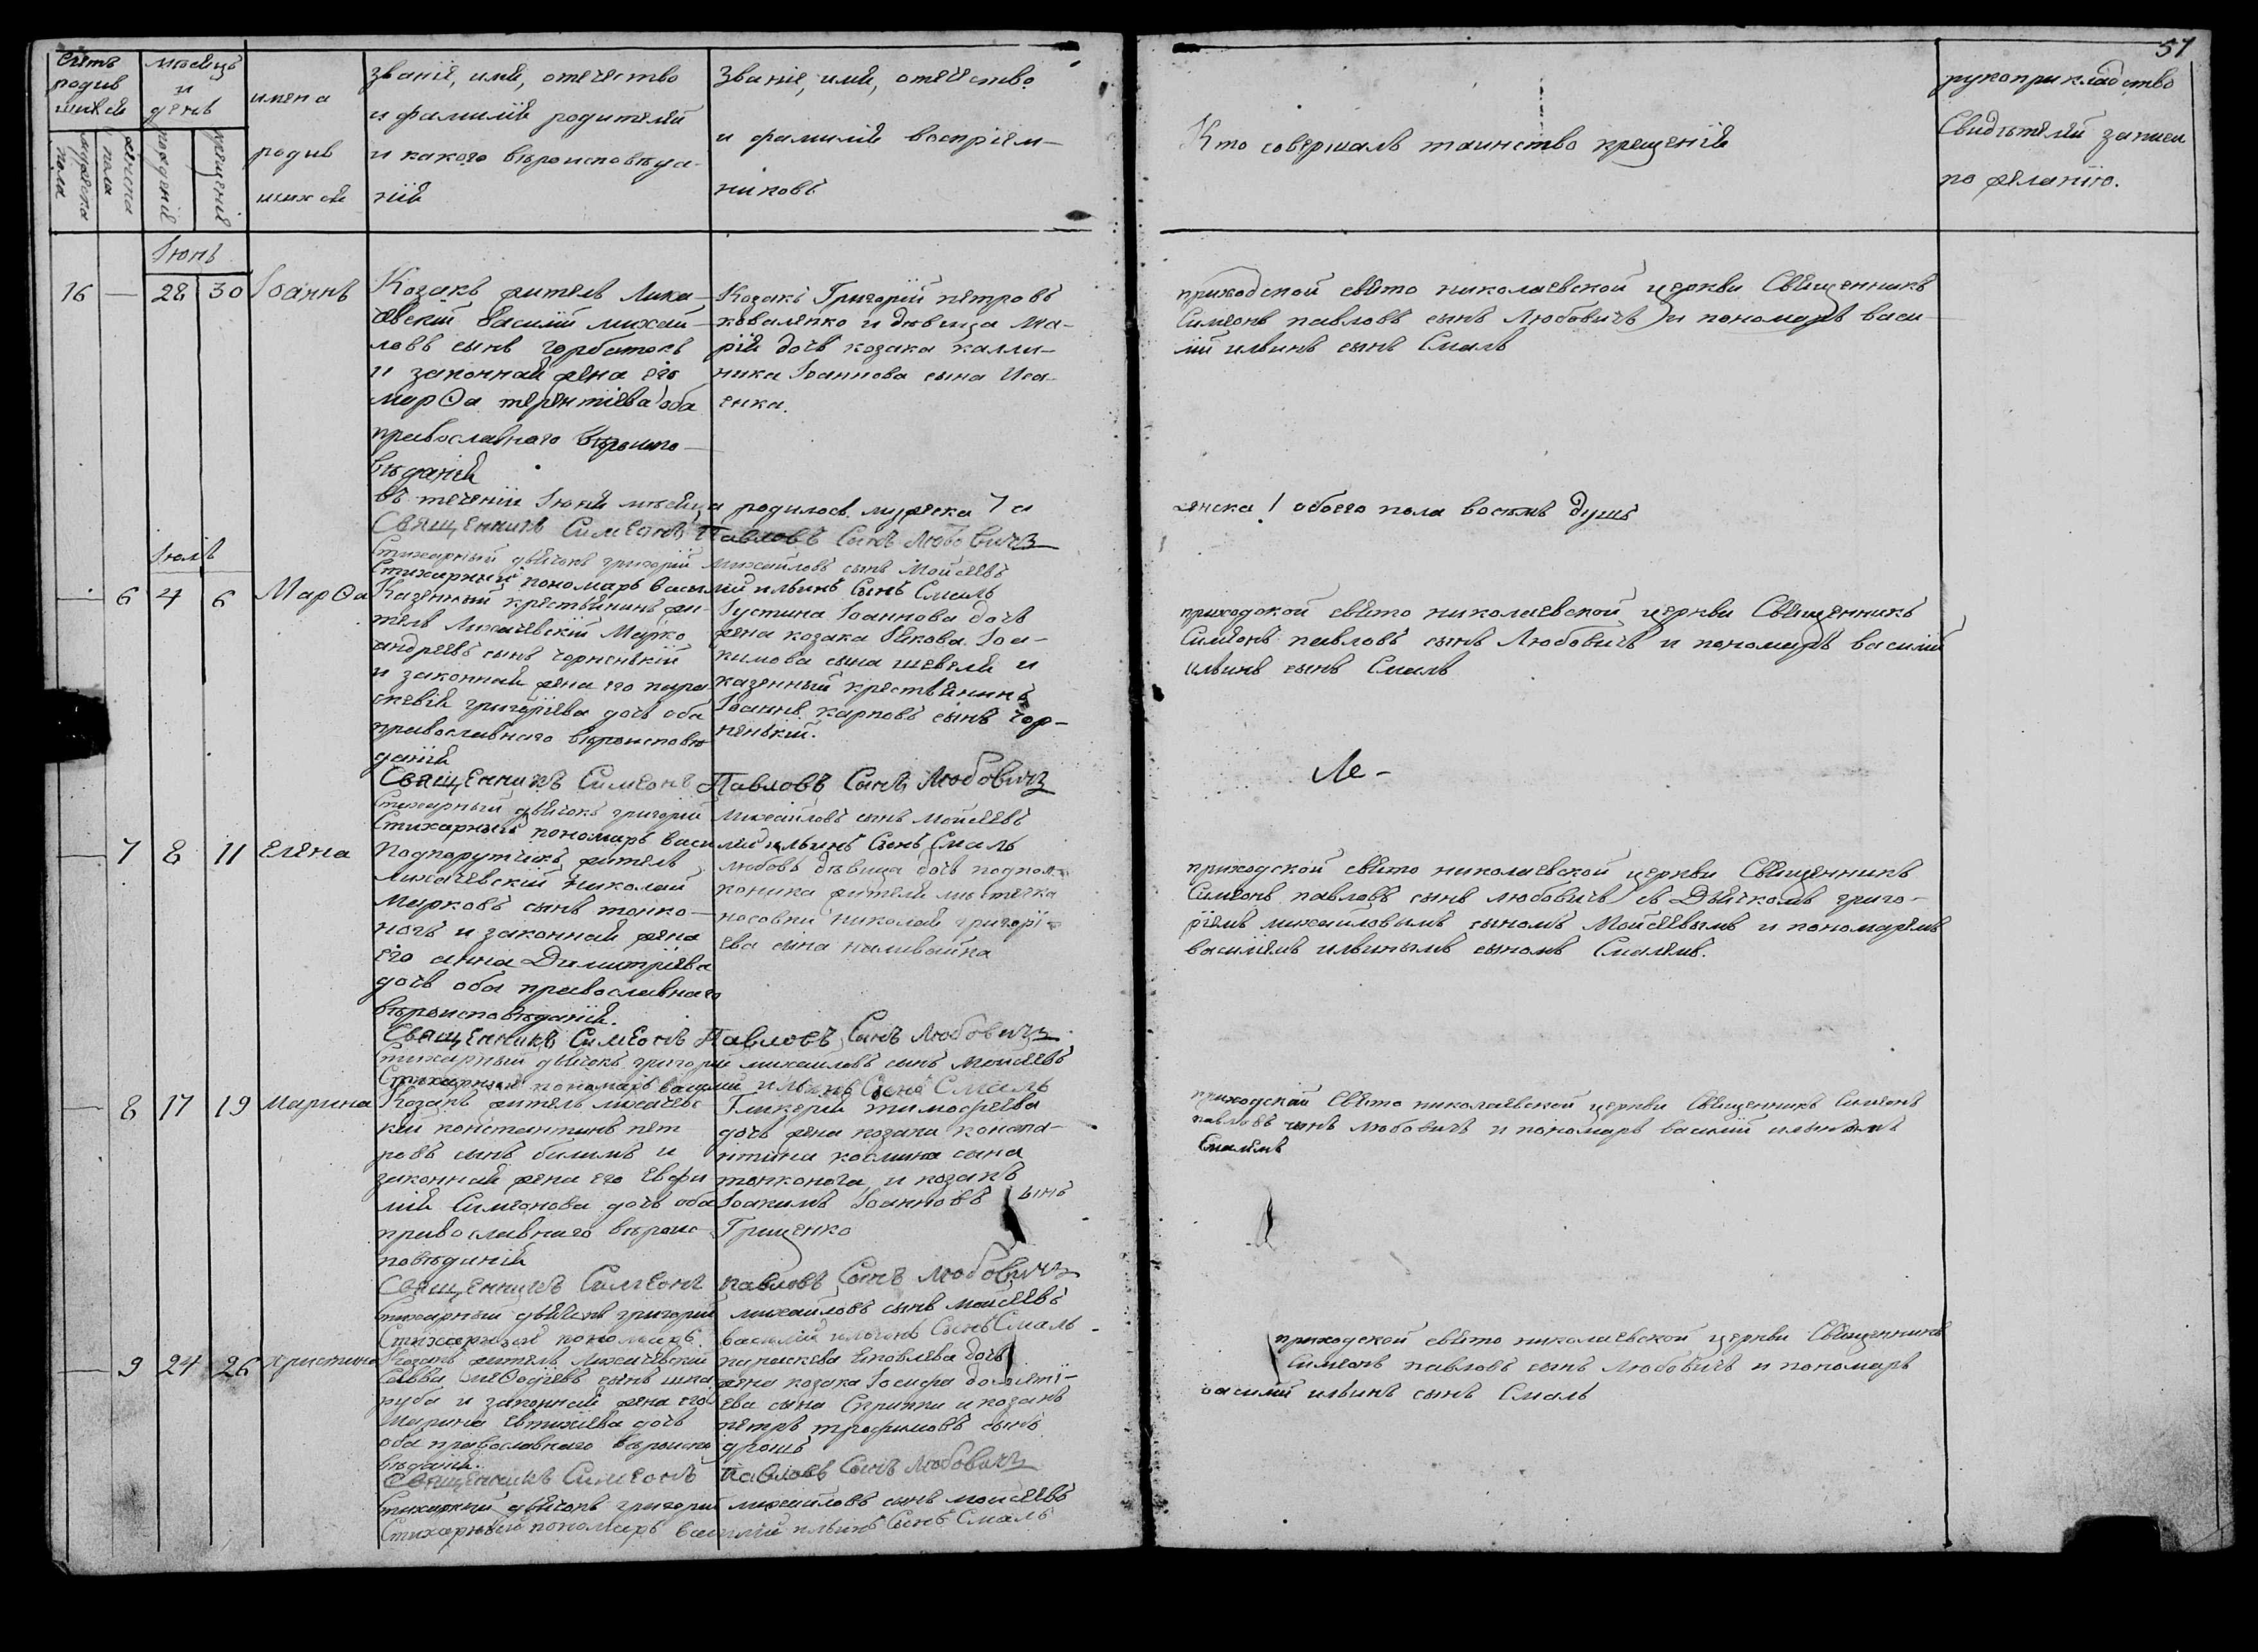 57
счетъ родившихся
мѣсяцъ и день
имена родившихся
званіе, имя, отечество
и фамилія родителей
и какого вѣроисповѣда-
нія
Званіе, имя, отечество
и фамилія воспріем-
никовъ
Кто совершалъ таинство крещенія
рукоприкладство
Свидѣтелей записи
по желанію.
мужеска пола
женска пола
рожденія
крещенія
Іюнь
16 — 28 30 Іоаннъ
Козакъ житель Лиха-
чевскій Василій михай-
ловъ сынъ горбатокъ
и законная жена его
марѳа терентіева оба
православного вѣроиспо-
вѣданія
Козакъ Григорій петровъ
коваленко и дѣвица Ма-
рія дочь козака калли-
ника Іоаннова сына Иса-
енка.
приходской свято николаевской церкви Священникъ
Симеонъ павловъ сынъ Любовичъ и пономаръ васи-
лій ильинъ сынъ Смаль
въ теченіи Іюня мѣсяца родилось мужеска 7 а женска 1 обоего пола восемъ душъ
Священникъ Симеонъ Павловъ Сынъ Любовичъ
Стихарный дьячокъ григорій михайловъ сынъ Мойсеевъ
Стихарный пономарь василій ильинъ Сынъ Смаль
Іюль
— 6 4 6 Марѳа
Казенный крестьянинъ жи-
тель Лихачевскій Марко
андреевъ сынъ чорненькій
и законная жена его пара
скевія григоріева дочь оба
православного вѣроисповѣ
данія
Іустина Іоаннова дочь
жена козака Іякова Іоа-
кимова сына шевеля и
казенный крестьянинъ
Іоаннъ карповъ сынъ чор-
ненькій.
приходской свято николаевской церкви Священникъ
Симеонъ павловъ сынъ Любовичъ и пономаръ василій
ильинъ сынъ Смаль
Священникъ Симеонъ Павловъ Сынъ Любовичъ
Стихарный дьячокъ григорій михайловъ сынъ мойсеевъ
Стихарный пономарь василій ильинъ Сынъ Смаль
— 7 8 11 Елена
Подпорутчикъ житель
Лихачевскій Николай
Марковъ сынъ тонко-
ногъ и законная жена
его анна Димитріева
дочь оба православного
вѣроисповѣданія.
любовь дѣвица дочь подпол-
ковника жителя мѣстечка
носовки николая григорі-
ева сына наливайка
приходской свято николаевской церкви Священникъ
Симеонъ павловъ сынъ любовичъ съ Дьячкомъ григо-
ріемъ михайловымъ сыномъ Мойсеевымъ и пономаремъ
василіемъ ильинымъ сыномъ Смалемъ.
Священникъ Симеонъ Павловъ Сынъ Любовичъ
Стихарный дьячокъ григорій михайловъ сынъ Мойсеевъ
Стихарный пономарь василій ильинъ Сынъ Смаль
— 8 17 19 Марина
Козакъ житель лихачевс
кій константинъ пет
ровъ сынъ билимъ и
законная жена его Евфи
мія Симеонова дочь оба
православного вѣроис-
повѣданія
Гликерія тимофеева
дочь жена козака конста-
нтина космина сына
тонконога и козакъ
Іоакимъ Іоанновъ сынъ
Грищенко
приходской Свято николаевской церкви Священникъ Симеонъ
павловъ сынъ любовичъ и пономаръ василій ильинъ
Смаль
Священникъ Симеонъ павловъ Сынъ Любовичъ
Стихарный дьячокъ григорій михайловъ сынъ мойсеевъ
Стихарный пономарь василій ильинъ Сынъ Смаль
— 9 24 26 христина
Козакъ житель Лихачевскій
Савва Меѳодіевъ сынъ шка
руба и законная жена его
Марина евтихіева дочь
оба православного вѣроиспо
вѣданія.
параскева Яковлева дочь
жена козака Іосифа
ева сына Скрипки и козакъ
петръ трофимовъ сынъ
дрошъ
приходской свято николаевской церкви Священникъ
Симеонъ павловъ сынъ Любовичъ и пономаръ
василій ильинъ сынъ Смаль
Священникъ Симеонъ Павловъ Сынъ Любовичъ
Стихарный дьячокъ григорій михайловъ сынъ мойсеевъ
Стихарный пономарь василій ильинъ Сынъ Смаль